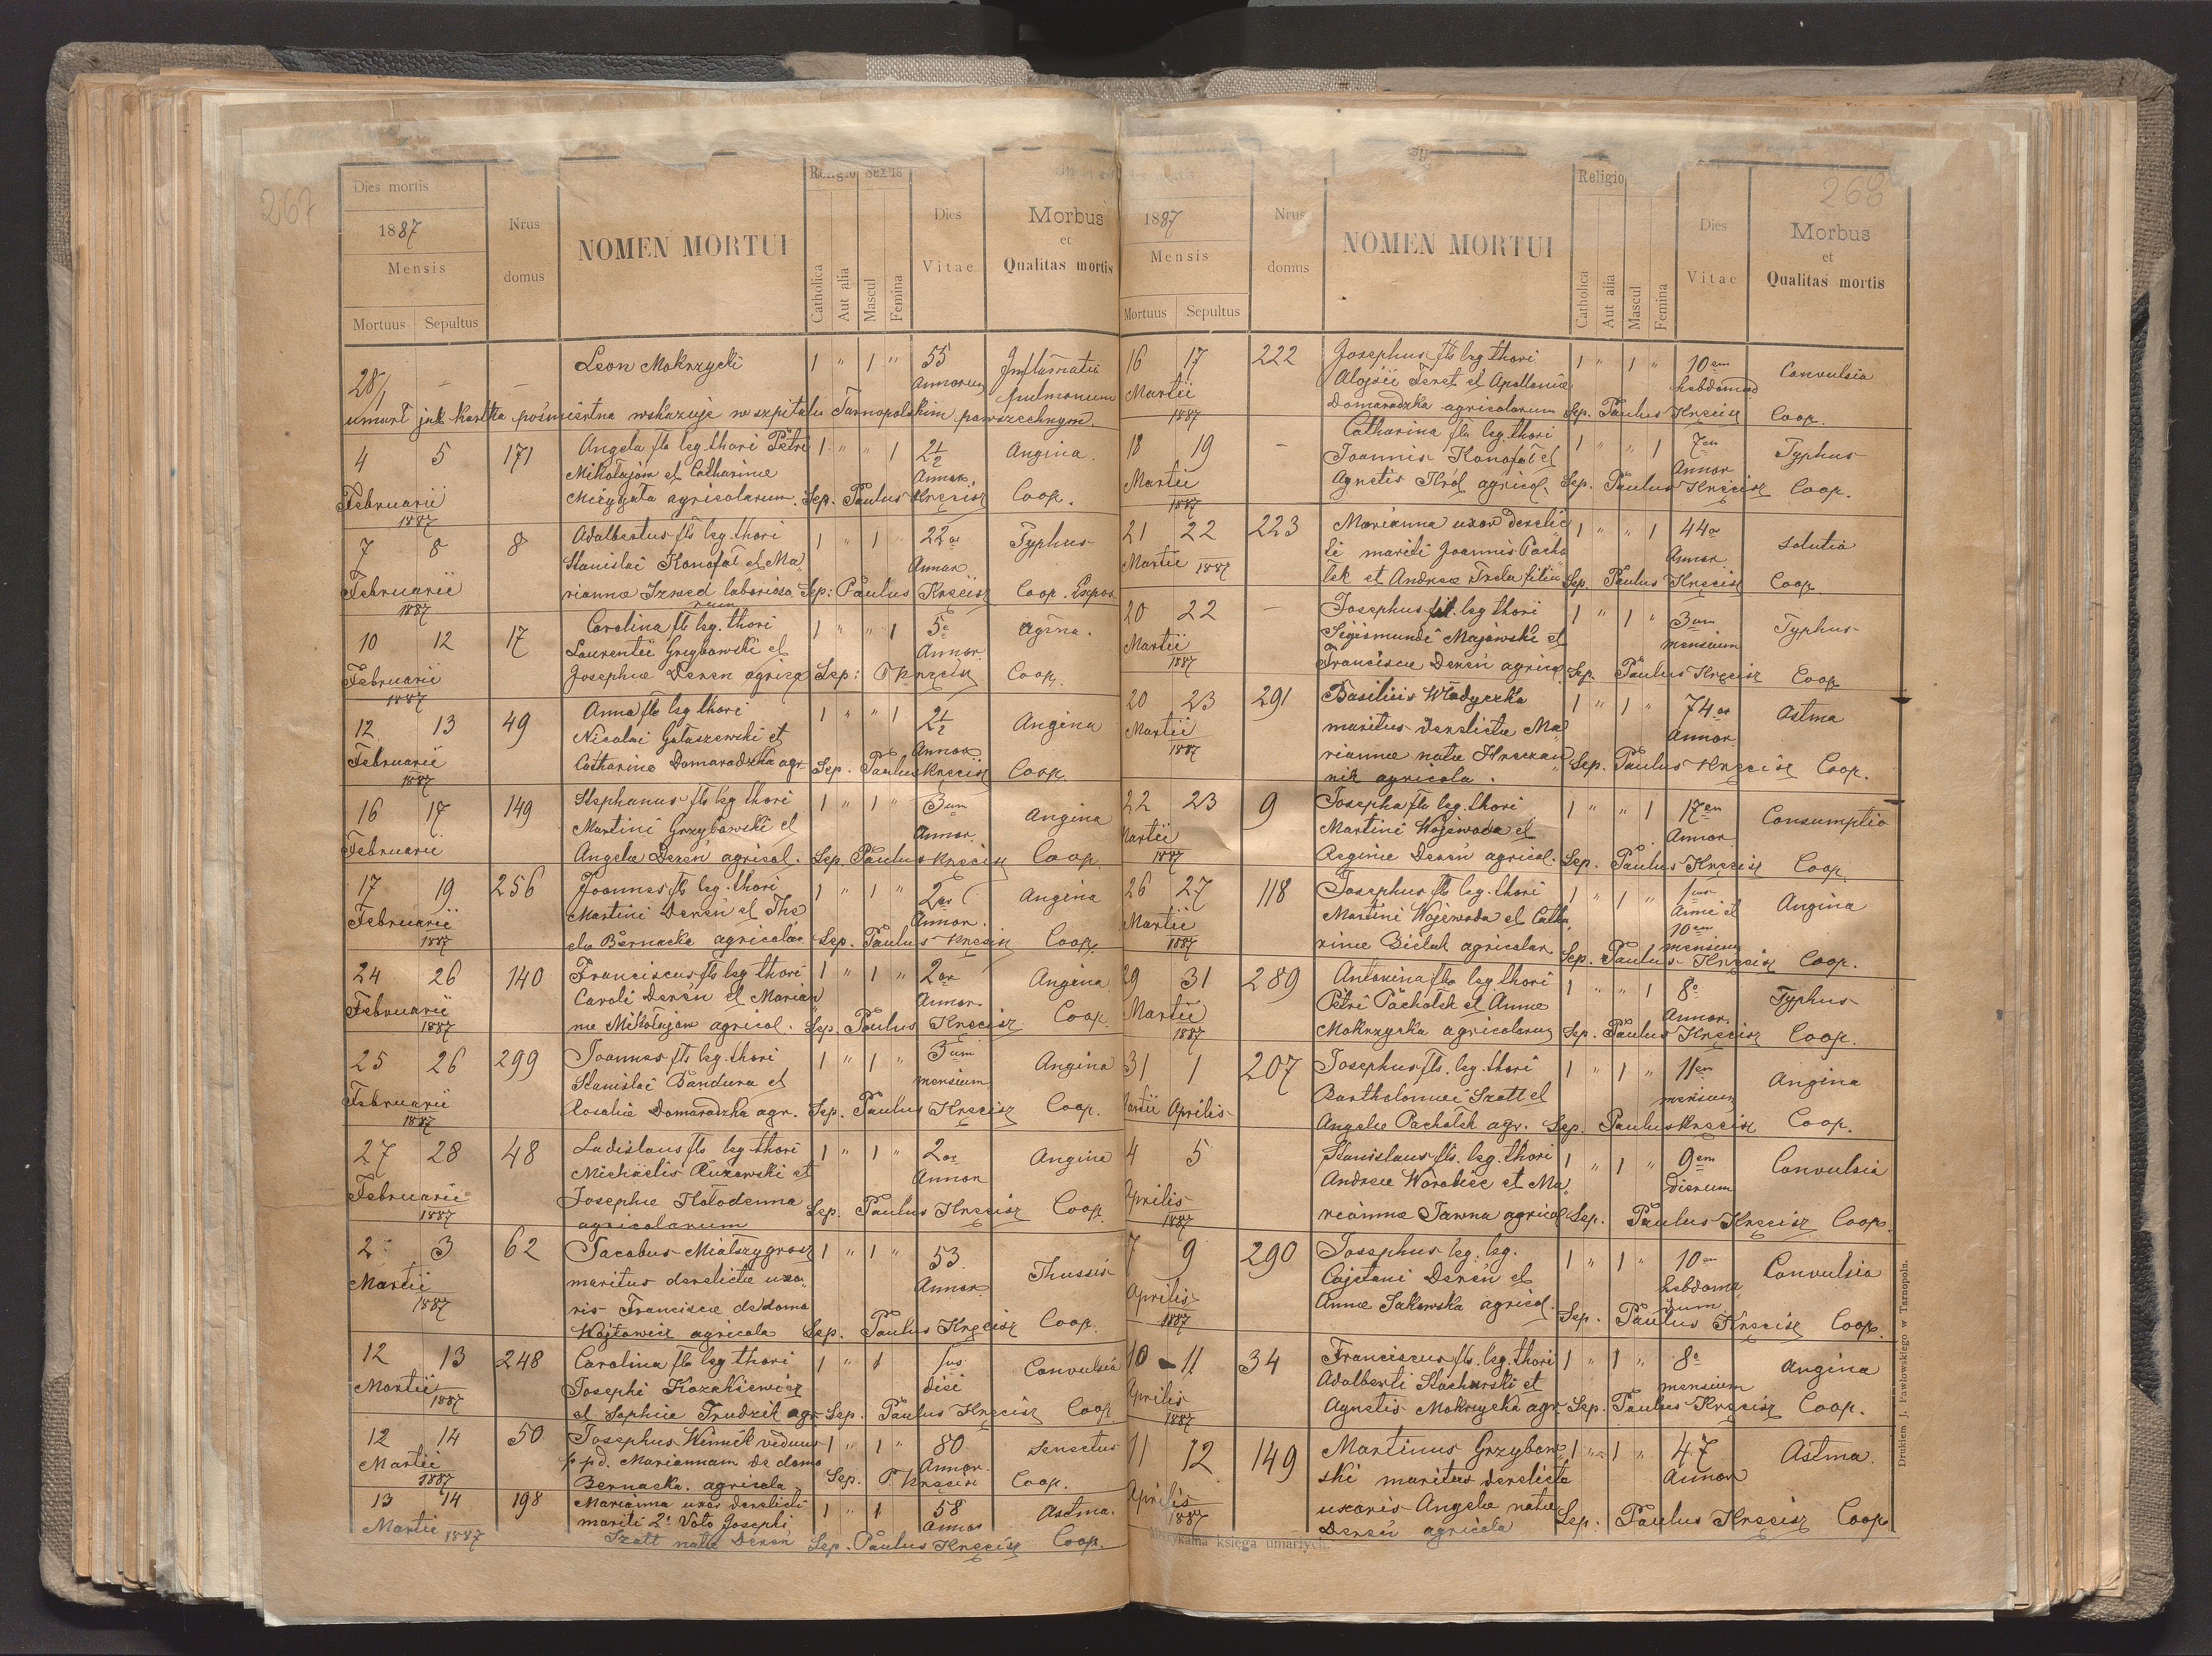 267
Dies mortis
1887
Mensis
Mortuus Sepultus
Nrus domus
NOMEN MORTUI
Religio Sexus
Catholica
Aut alia
Mascul
Femina
Dies Vitae
Morbus
et
Qualitas mortis
28/1 - - Leon Mokrzycki 1 " 1 " 55 Annorum
pulmonum
umarł jak kartka pośmiertna wskazuje w szpitalu Tarnopolskim powszechnym.
4 5 171 Angela fla leg. thori Petri 1 " " 1 2½ Angina.
Mikołajów et Catharinae Annor.
Februarii agricolarum. Sep. Paulus Kręcisz Coop.
1887
7 8 8 Adalbertus fls leg. thori 1 " 1 " 22or Typhus
Stanislai Konofał et Ma„ Annor.
Februarii rianna laborioso Sep: Paulus Kręcisz Coop. Expos
1887 rum
10 12 17 Carolina fla leg. thori 1 " " 1 5e Agina.
Laurentii Grzybowski et Annor.
Februarii Josephae Dereń agricol Sep: P Kręcisz Coop.
1887
12 13 49 Anna fla leg thori 1 " " 1 2½ Angina
Nicolai Gołaszewski et Annor
Februarii Catharina Domaradzka agr. Sep. Paulus Kręcisz Coop.
1887
16 17 149 Stephanus fls leg thori 1 " 1 " 3um Angina
Martini Grzybowski et Annor.
Februarii Angelae Dereń agricol. Sep. Paulus Kręcisz Coop.
17 19 256 Joannes fls leg. thori 1 " 1 " 2or Angina
Martini Dereń et The Annor.
Februarii cla Bernacka agricolar. Sep. Paulus Kręcisz Coop.
1887
24 26 140 Franciscus fls leg thori 1 " 1 " 2or Angina
Caroli Dereń et Marian„ Annor.
Februarii nae Mikołajów agricol. Sep. Paulus Kręcisz Coop.
1887
25 26 299 Joannes fls leg. thori 1 " 1 " 3um Angina
Stanislai Bandura et mensium
Februarii Rosaliae Domaradzka agr. Sep. Paulus Kręcisz Coop.
1887
27 28 48 Ladislaus fls leg thori 1 " 1 " 2or Angina
Michaelis et Annor
Februarii Josephae Kołodenna Sep. Paulus Kręcisz Coop.
1887 agricolarum
2 3 62 Jacobus 1 " 1 " 53. Thussis
Martii maritus derelictae uxo„ Annor.
1887 ris Franciscae de domo
Wojtowicz agricola Sep. Paulus Kręcisz Coop.
12 13 248 Carolina fla leg thori 1 " 1 1us Convulsia
Martii Josephi Kozakiewicz diei
1887 et Sophiae Trudzik agr Sep. Paulus Kręcisz Coop
12 14 50 Josephus Winnik viduus 1 " 1 " 80 Senectus
Martii p pd. Mariannam de domo Annor.
1887 Bernacka. agricola Sep. P. Kręcisz Coop.
13 14 198 Marianna uxor derelicti 1 " 1 58 Astma.
Martii 1887 mariti 2. Voto Josephi Annor
Szatt natae Dereń Sep. Paulus Kręcisz Coop.
268
1887
Mensis
Mortuus Sepultus
Nrus domus
NOMEN MORTUI
Religio
Catholica
Aut alia
Mascul
Femina
Dies Vitae
Morbus
et
Qualitas mortis
16 17 222 Josephus fls leg thori 1 " 1 " 10em Convulsia
Martii Alojsii et Apolloniae hebdomad
1887 Domaradzka agricolarum Sep. Paulus Kręcisz Coop.
18 19 - Catharina fla leg. thori 1 " " 1 7em Typhus
Joannis Konofał et Annor
Martii Agnetis Król agricol. Sep. Paulus Kręcisz Coop.
1887
21 22 223 Marianna uxor derelic 1 " " 1 44or Solutio
Martii 1887 ti mariti Joannis Pacho Annor
łek et Andreae filia Sep. Paulus Kręcisz Coop.
20 22 - Josephus fil. leg thori 1 " 1 " 3um Typhus
Martii Sigismundi Majewski et mensium
1887 Franciscae Dereń agricol. Sep. Paulus Kręcisz Coop
20 23 291 Basilius Władyczka 1 " 1 " 74or Astma
Martii maritus derelictae Ma„ Annor.
1887 riannae natae Sep. Paulus Kręcisz Coop.
nik agricola.
22 23 9 Josepha fla leg. thori 1 " " 1 17em Consumptio
Martii Martini Wojewoda et Annor
1887 Reginae Dereń agricol. Sep. Paulus Kręcisz Coop.
26 27 118 Josephus fls leg. thori 1 " 1 " 1us Angina
Martii Martini Wojewoda et Catha„ Anni et 10em
1887 rinae Bielak agricolar Sep. mensium Paulus Kręcisz Coop.
29 31 289 Antonina fla leg thori 1 " " 1 8o Typhus
Martii Petri Pachołek et Annae Annor.
1887 Mokrzycka agricolarum Sep. Paulus Kręcisz Coop.
31 1 207 Josephus fls. leg. thori 1 " 1 " 11em Angina
Bartholomei Szatt et mensium
Martii Aprilis Angelae Pachołek agr. Sep. Paulus Kręcisz Coop.
4 5 Stanislaus fls. leg. thori 1 " 1 " 9em Convulsia
Andreae et Ma„ dierum
Aprilis riannae agricol Sep. Paulus Kręcisz Coop.
1887
7 9 290 Josephus leg. leg. 1 " 1 " 10em Convulsia
Aprilis Cajetani Dereń et hebdoma
1887 Annae agricol. Sep. dum Paulus Kręcisz Coop.
10 - 11 34 Franciscus fls. leg. thori 1 " 1 " 8o Angina
Aprilis Adalberti et mensium
1887 Agnetis Mokrzycka agr. Sep. Paulus Kręcisz Coop.
11 12 149 Martinus Grzybow 1 " 1 " 47 Astma.
ski maritus derelictae Annor
Aprilis uxoris Angelae natae Sep. Paulus Kręcisz Coop
1887 Dereń agricola
księga umarłych.
Drukiem J. Pawłowskiego w Tarnopolu.